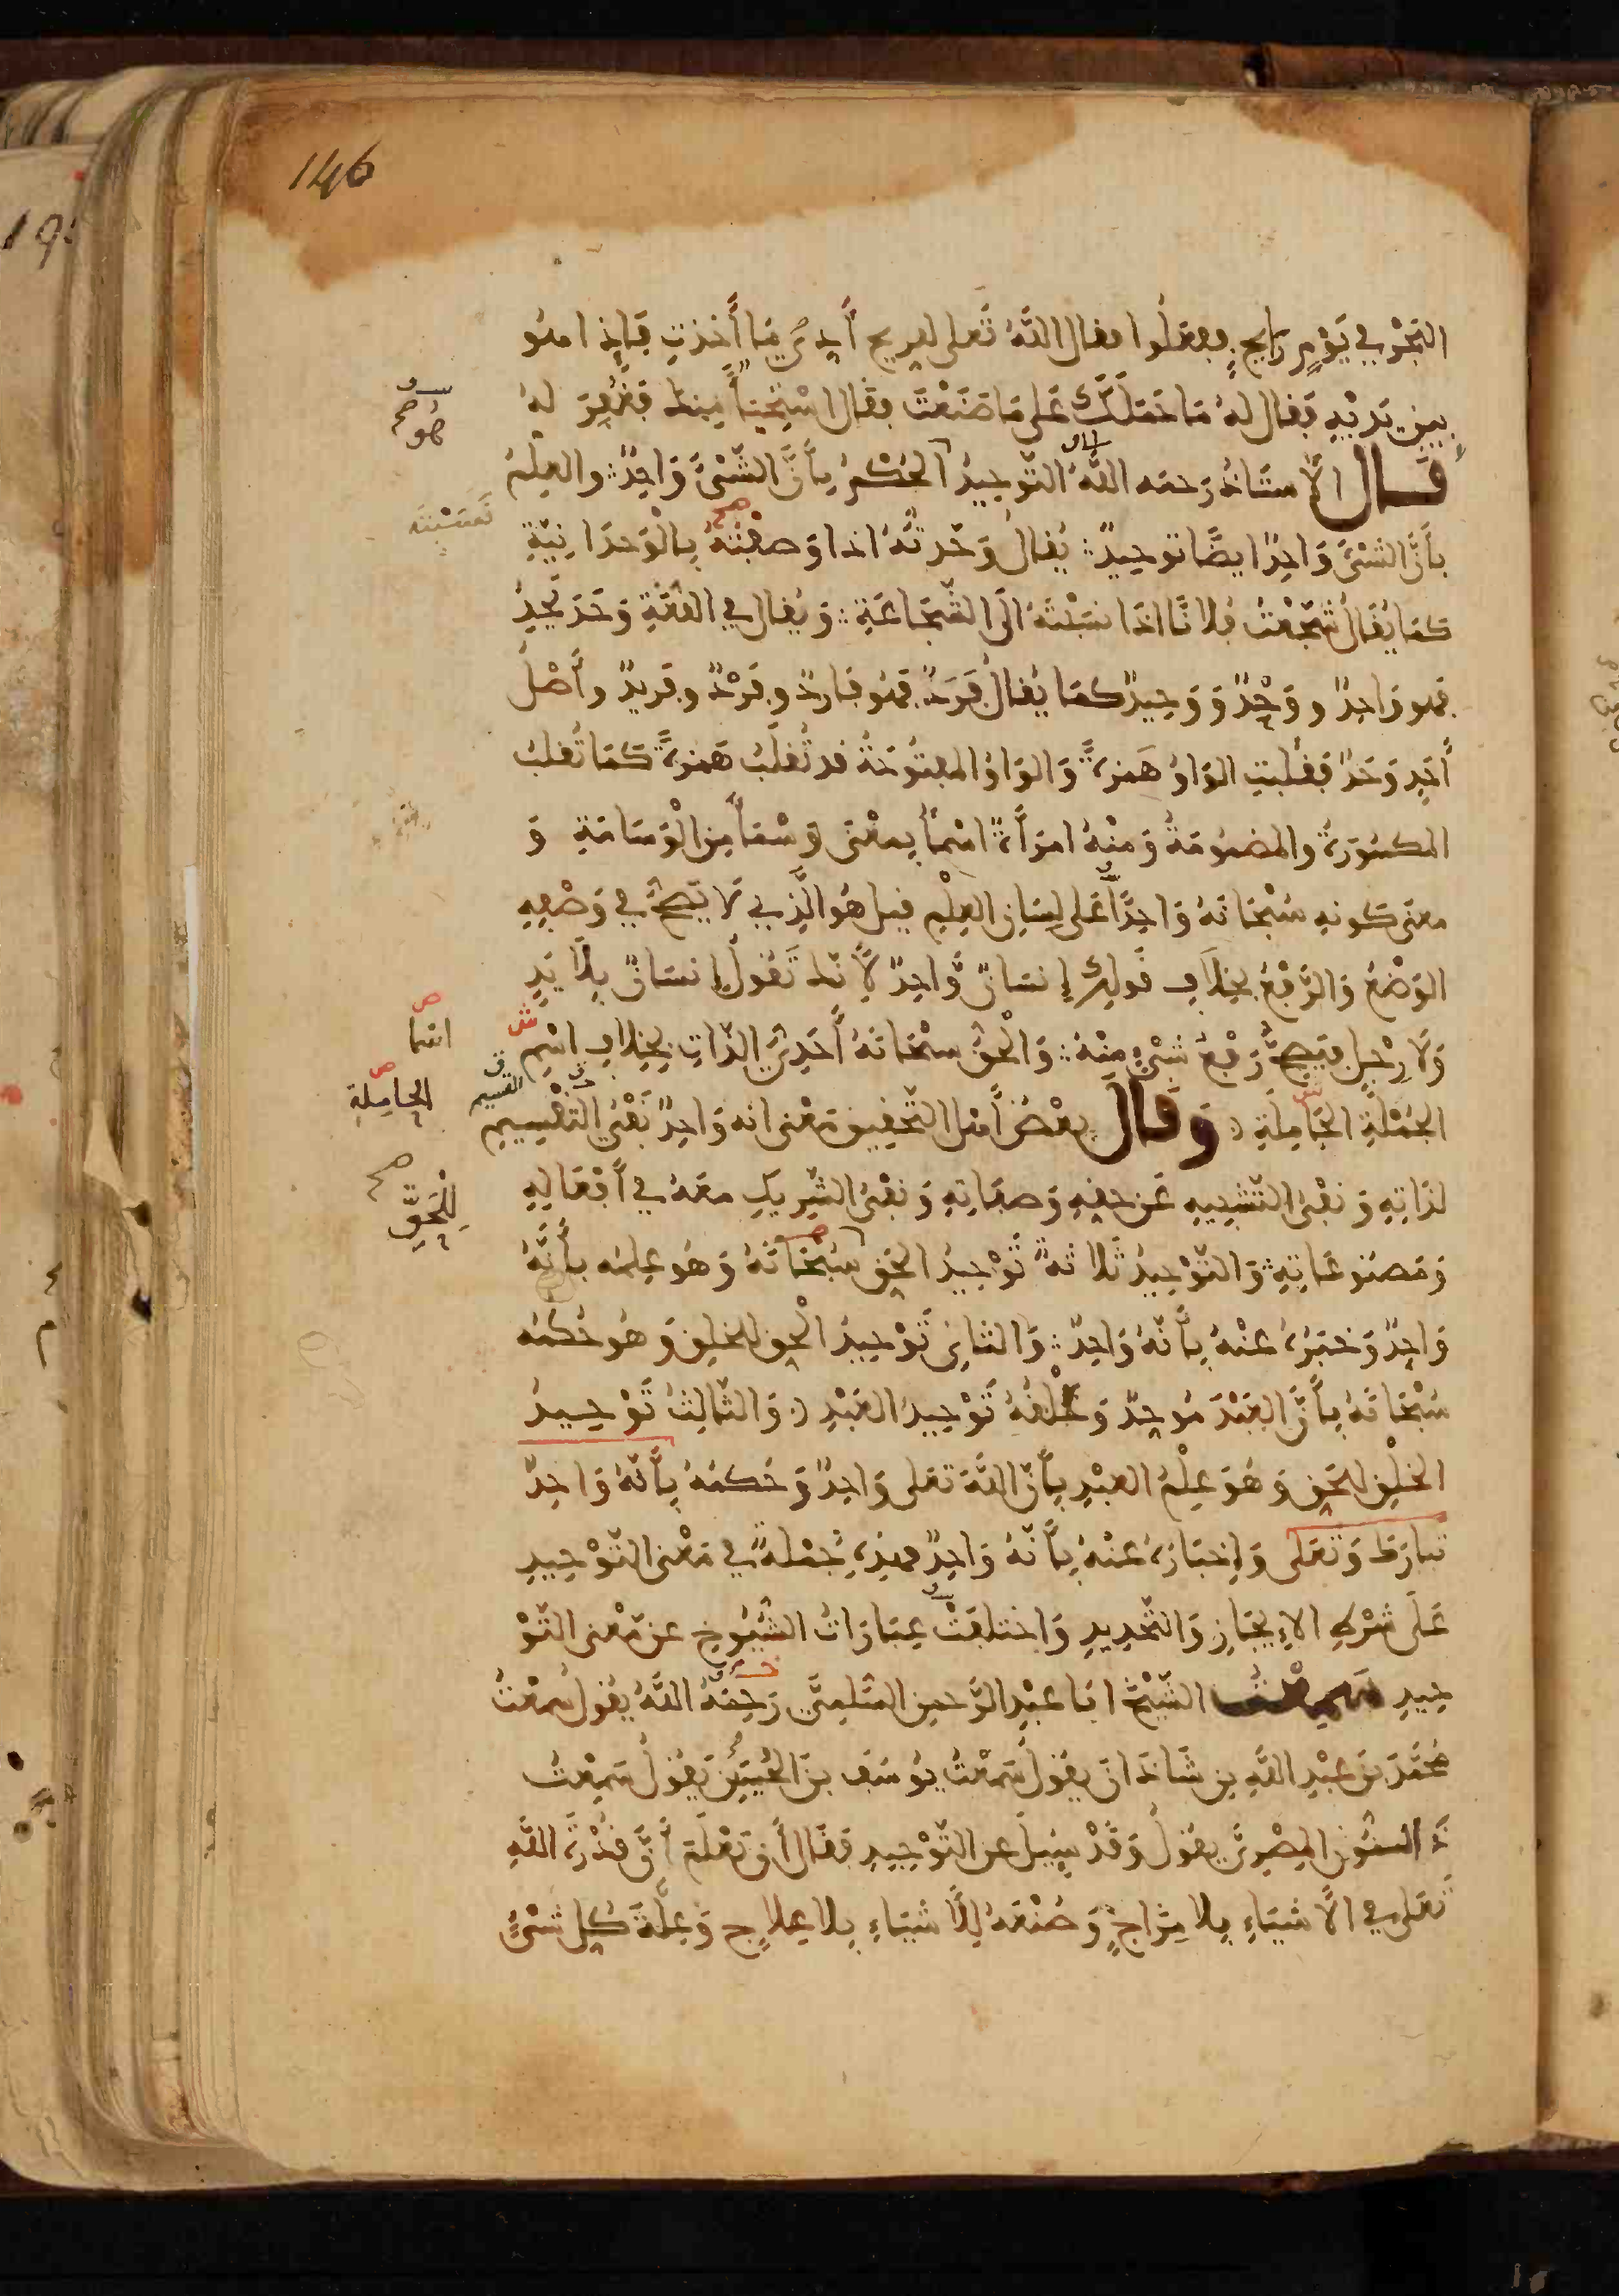 146
البحر في يوم رايح ففعلوا فقال الله تعلى للريح أدي ما أخذت فإذا هو
بين يديه فقال له ما حملك على ما صنعت فقال استحياء منك فغفر له
هو صح
قال الأستاذ رحمه الله التوحيد الحكم بأن الشيء واحد والعلم
بأن الشيء واحد ايضا توحيد يقال وحدته اذا وصفته بالوحدانية
كما يقال شجعت فلانا اذا نسبته الى الشجاعة ويقال في اللغة وحد يحد
فهو واحد ووحد ووحيد كما يقال فرد فهو فارد وفرد وفريد وأصل
أحد وحد فقلبت الواو همزة والواو المفتوحة قد تقلب همزة كما تقلب
المكسورة والمضمومة ومنه امرأة اسماء بمعنى وسماء من الوسامة و
معنى كونه سبحانه واحدا على لسان العلم قيل هو الذي لا يصح في وصفه
الوضع والرفع بخلاف قولك إنسان واحد لأنك تقول إنسان بلا يد
ولا رجل فيصح رفع شيء منه والحق سبحانه أحدي الذات بخلاف اسم
انما
الجملة الحاملة وقال بعض أهل التحقيق معنى انه واحد نفي التقسيم
القسيم
الحاملة
لذاته ونفي التشبيه عن حقه وصفاته ونفي الشريك معه في أفعاله
للحق صح
ومصنوعاته والتوحيد ثلاثة توحيد الحق سبحانه وهو علمه بأنه
واحد وخبره عنه بأنه واحد والثاني توحيد الحق للخلق وهو حكمه
سبحانه بأن العبد موحد وخلقه توحيد العبد والثالث توحيد
الخلق للحق وهو علم العبد بأن الله تعلى واحد وحكمه بأنه واحد
تبارك وتعلى وإخباره عنه بأنه واحد فهذه جملة في معنى التوحيد
على شرط الإيجاز والتحديد واختلفت عبارات الشيوخ عن معنى التو
حيد سمعت الشيخ ابا عبد الرحمن السلمي رحمه الله يقول سمعت
محمد بن عبد الله بن شاذان يقول سمعت يوسف بن الحسين يقول سمعت
ذا النون المصري يقول وقد سيل عن التوحيد فقال أن تعلم أن قدرة الله
تعلى في الأشياء بلا مزاج وصنعه للأشياء بلا علاج وعلة كل شيء